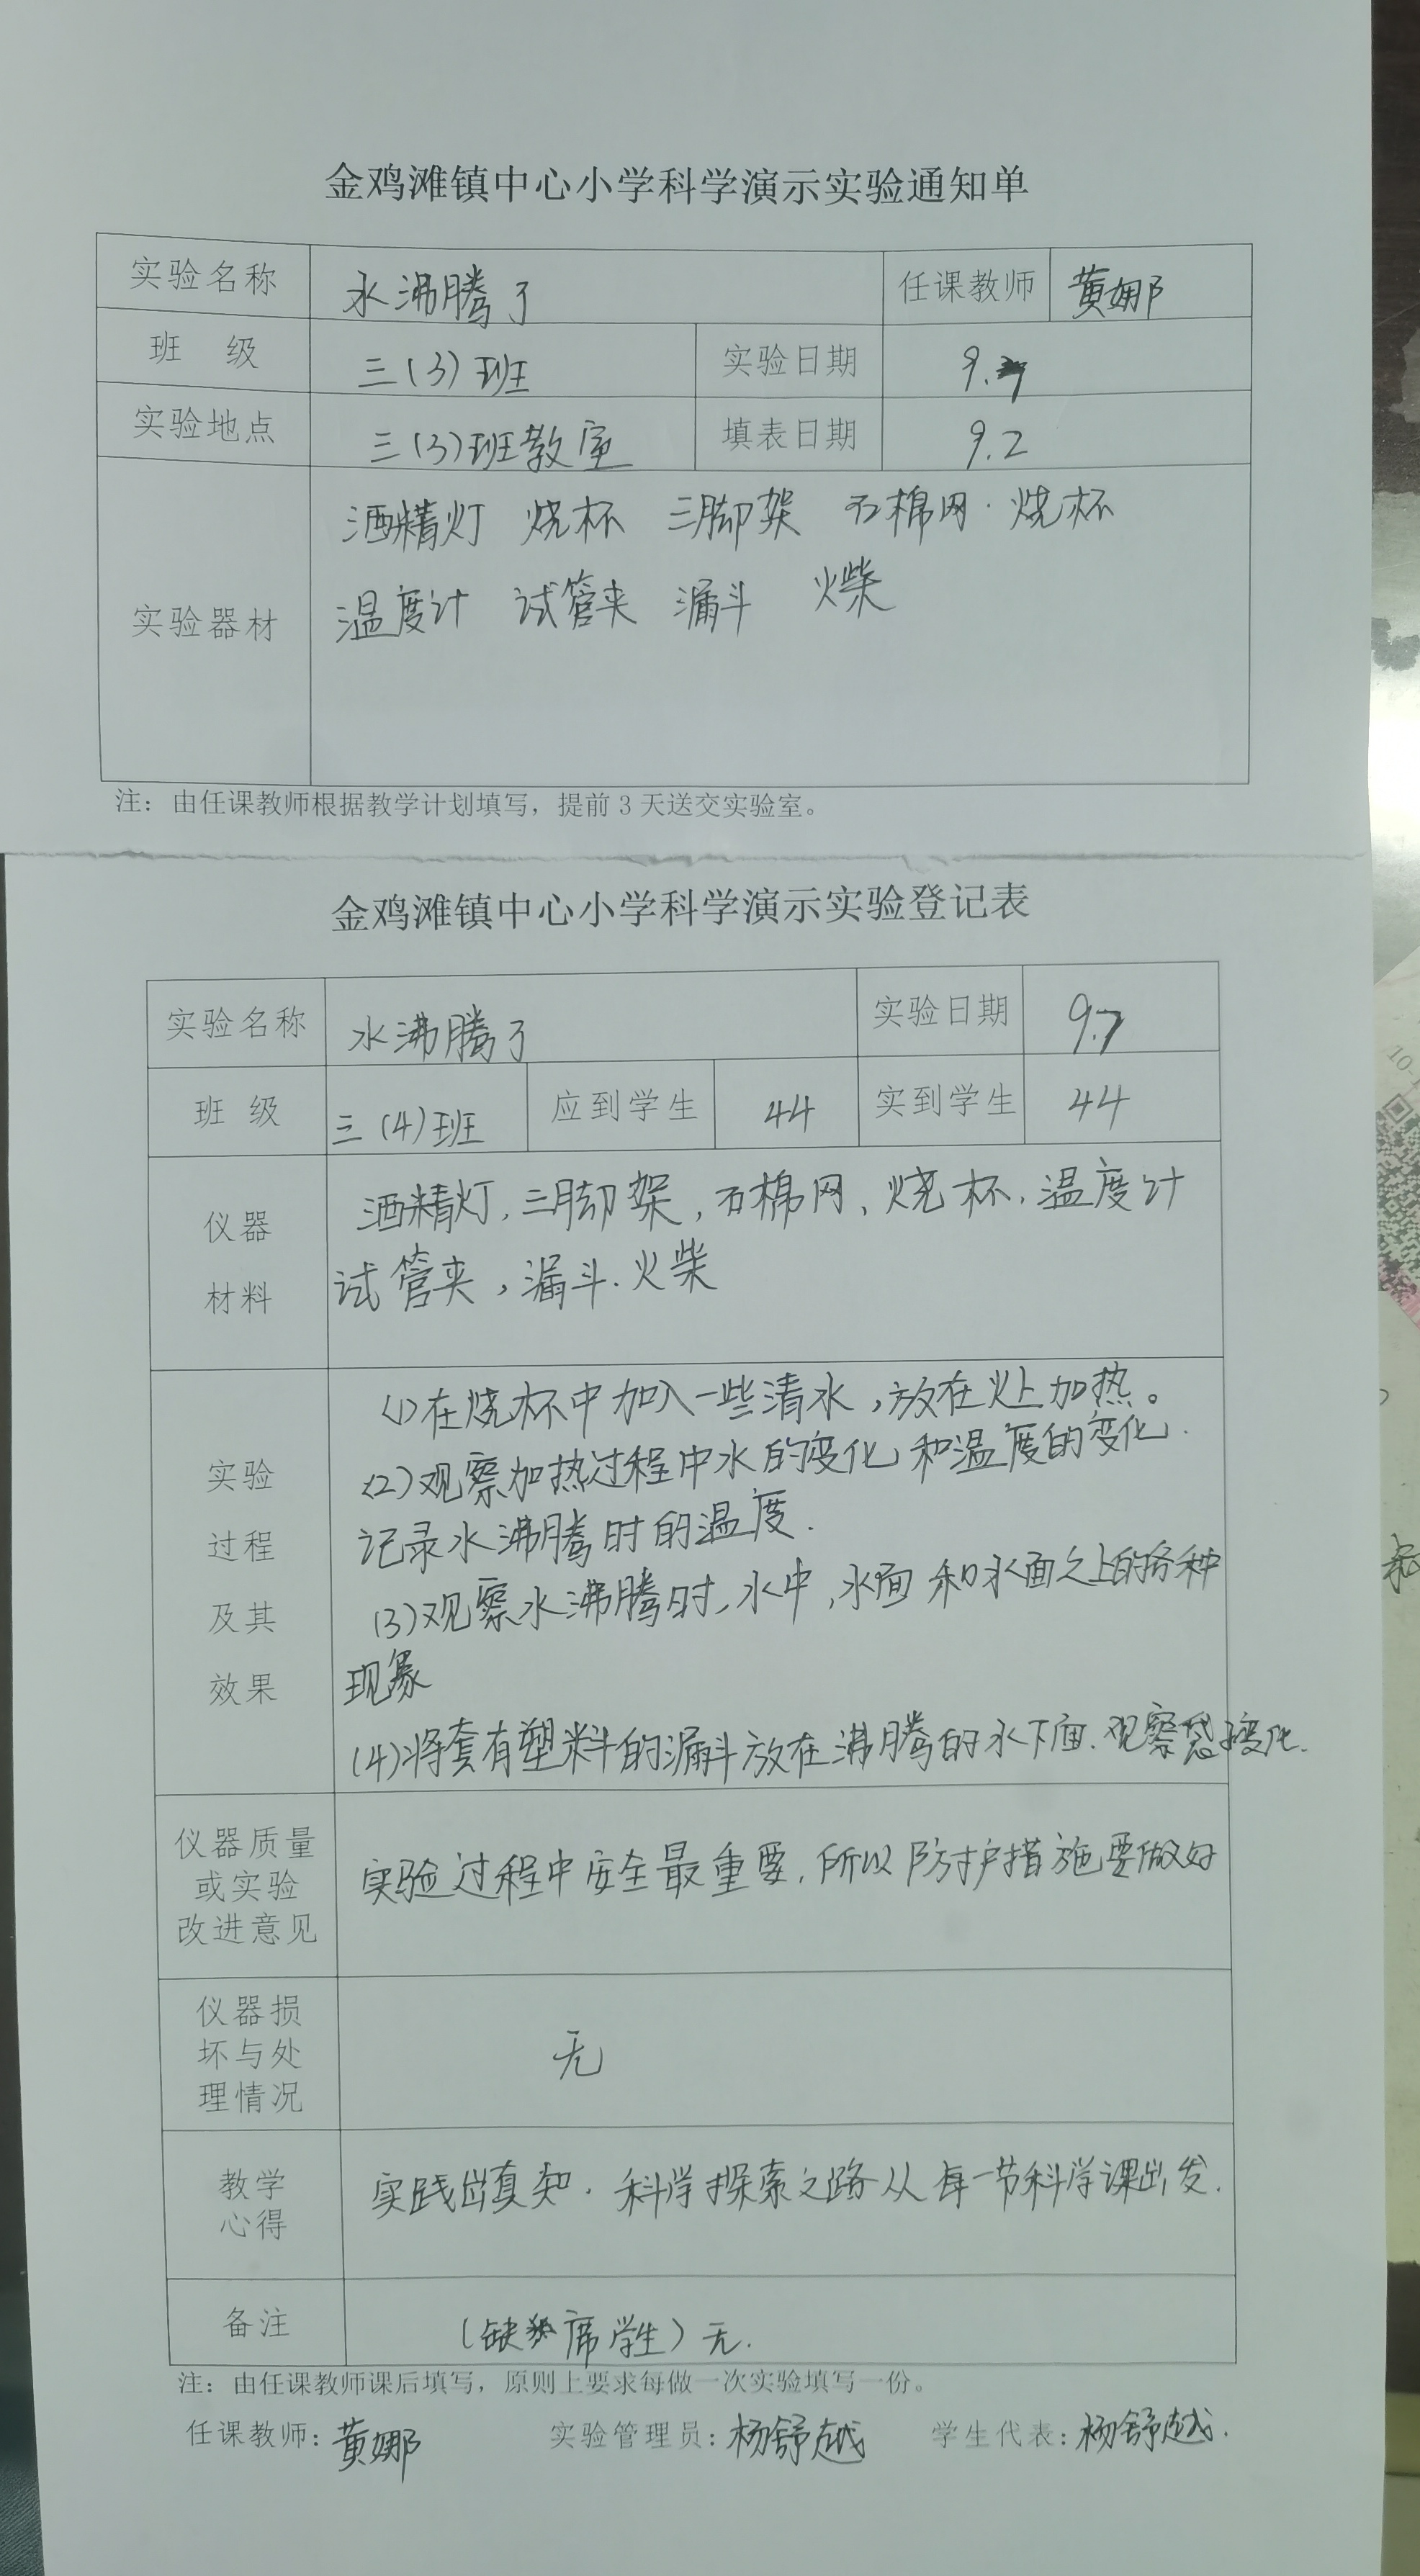 金鸡滩镇中心小学科学演示实验通知单
实验名称 水沸腾了 任课教师 黄娜
班 级 三(3)班 实验日期 9.7
实验地点 三(3)班教室 填表日期 9.2
实验器材
酒精灯 烧杯 三脚架 石棉网.烧杯
温度计 试管夹 漏斗 火柴
注：由任课教师根据教学计划填写，提前3天送交实验室。
金鸡滩镇中心小学科学演示实验登记表
实验名称 水沸腾了 实验日期 9.7
班 级 三(4)班 应到学生 44 实到学生 44
仪器
材料
酒精灯,三脚架,石棉网、烧杯.温度计
试管夹,漏斗.火柴
实验
过程
及其
效果
(1)在烧杯中加入一些清水,放在火上加热。
(2)观察加热过程中水的变化和温度的变化.
记录水沸腾时的温度.
(3)观察水沸腾时,水中,水面和水面之上的各种
现象
(4)将套有塑料的漏斗放在沸腾的水下面.观察袋子变化.
仪器质量
或实验
改进意见
实验过程中安全最重要,所以防护措施要做好
仪器损
坏与处
理情况
无
教学
心得
实践出真知.科学探索之路从每一节科学课出发.
备注 (缺席学生)无.
注：由任课教师课后填写，原则上要求每做一次实验填写一份。
任课教师：黄娜 实验管理员：杨舒越 学生代表：杨舒越.
10-1